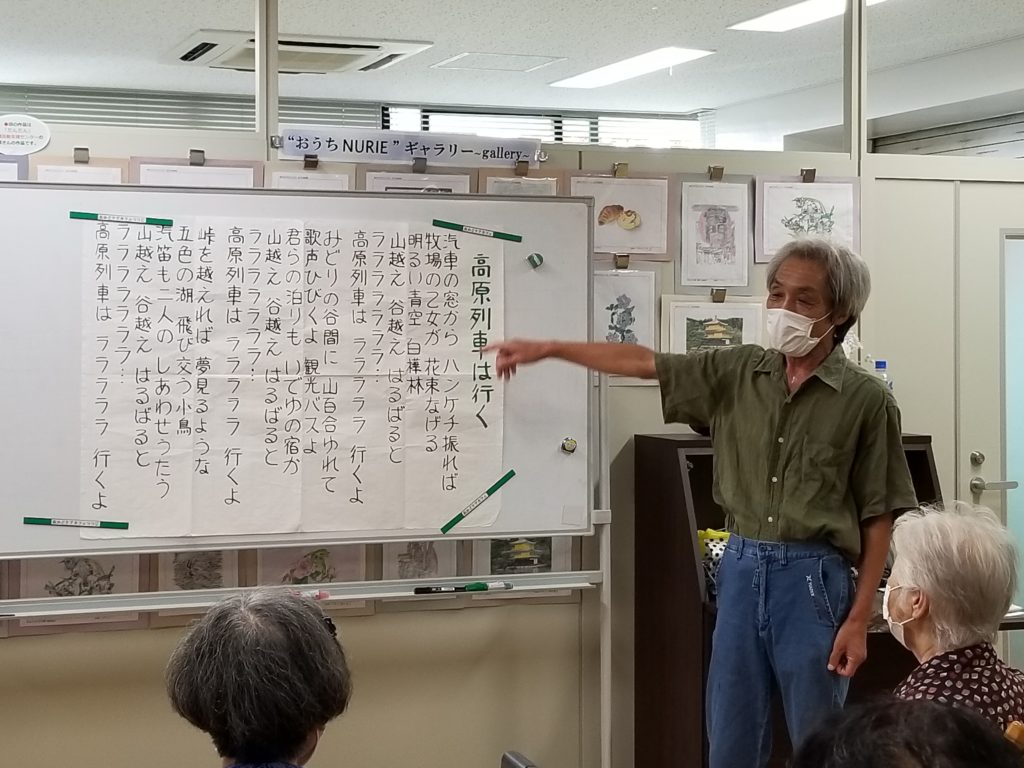 “おうちNURIE”ギャラリー~gallery~
高原列車は行く
汽車の窓から ハンケチ振れば
牧場の乙女が 花束なげる
明るい青空 白樺林
山越え 谷越え はるばると
ララララ ララララ…
高原列車は ララララ 行くよ
みどりの谷間に 山百合ゆれて
歌声ひびくよ 観光バスよ
君らの泊りも いでゆの宿か
山越え 谷越え はるばると
ララララ ララララ…
高原列車は ララララ 行くよ
峠を越えれば 夢見るような
五色の湖 飛び交う小鳥
汽笛も二人の しあわせうたう
山越え 谷越え はるばると
ララララ ララララ…
高原列車は ララララ 行くよ